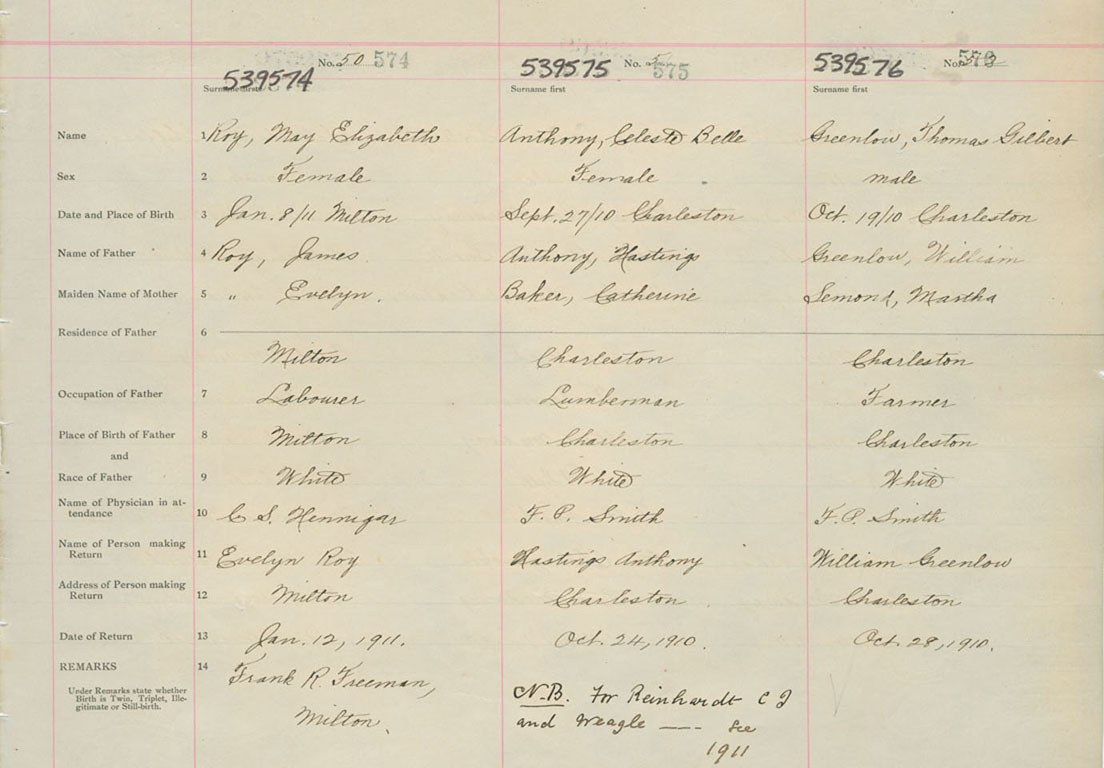 539574 No. 50 574
Surname first
539575 No. 5 575
Surname first
539576 No.
Surname first
Name 1 Roy, May Elizabeth Anthony, Celeste Belle Greenlow, Thomas Gilbert
Sex 2 Female Female male
Date and Place of Birth 3 Jan. 8/11 Milton Sept. 27/10 Charleston Oct. 19/10 Charleston
Name of Father 4 Roy, James. Anthony, Hastings Greenlow, William
Maiden Name of Mother 5 " Evelyn. Baker, Catherine Martha
Residence of Father 6
Milton Charleston Charleston
Occupation of Father 7 Labourer Lumberman Farmer
Place of Birth of Father 8 Milton Charleston Charleston
and
Race of Father 9 White White White
Name of Physician in at-
tendance 10 C S. Hennigar F. P. Smith F. P. Smith
Name of Person making
Return 11 Evelyn Roy Hastings Anthony William Greenlow
Address of Person making
Return 12 Milton Charleston Charleston
Date of Return 13 Jan. 12, 1911. Oct. 24, 1910. Oct. 28, 1910.
REMARKS 14 Frank R. Freeman,
Milton
Under Remarks state whether
Birth is Twin, Triplet, Ille-
gitimate or Still-birth.
N.B. For Reinhardt C J
and Weagle — See
1911